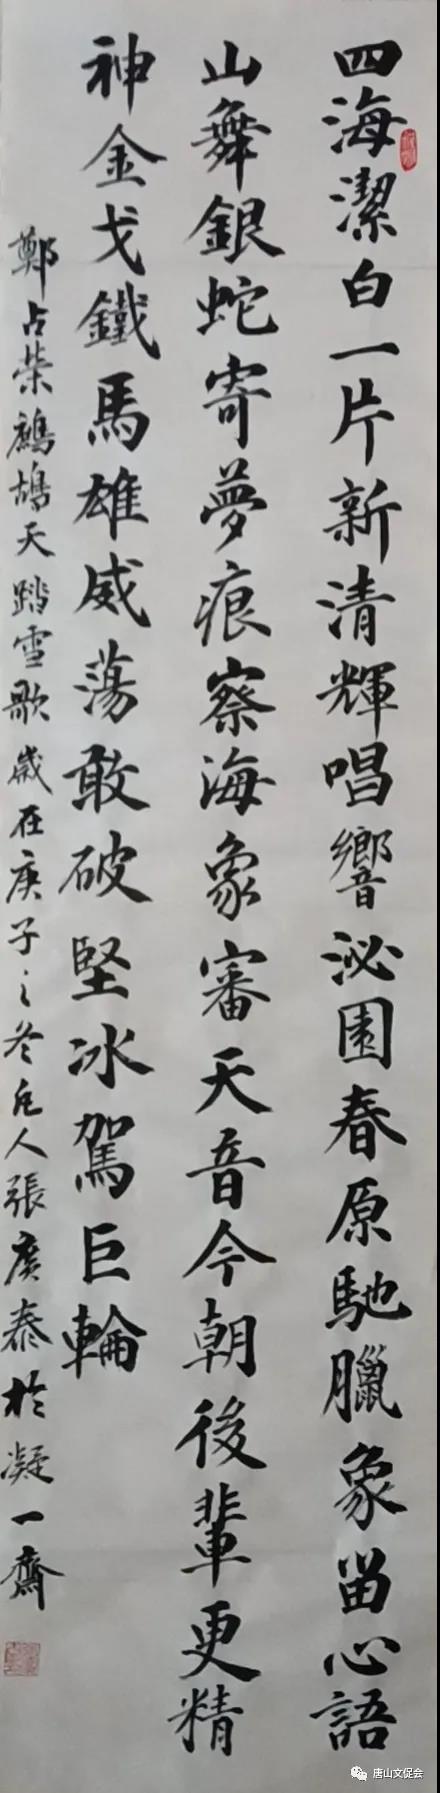 四海潔白一片新清輝唱響泌園春原馳臘象留心語
山舞銀蛇寄夢痕察海象審天音今朝後輩更精
神金戈鐵馬雄威蕩敢破堅冰駕巨輪
鄭占榮鷓鴣天踏雪歌歲在庚子之冬人張廣泰於凝一齋
唐山文促会